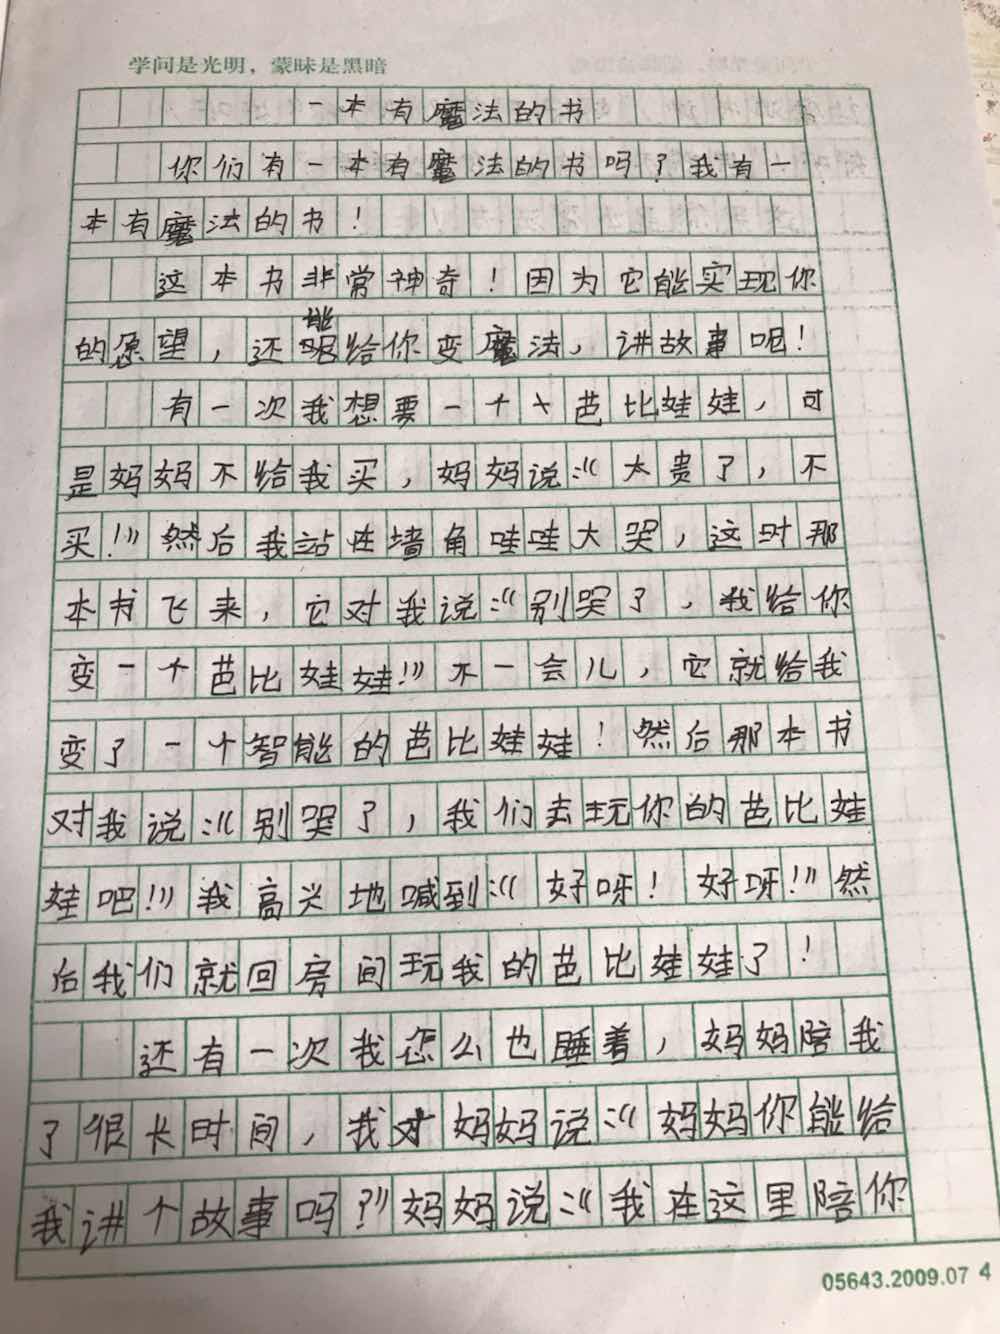 学问是光明，蒙昧是黑暗
一本有魔法的书
你们有一本有魔法的书吗？我有一
本有魔法的书！
这本书非常神奇！因为它能实现你
的愿望，还能给你变魔法，讲故事呢！
有一次我想要一个芭比娃娃，可
是妈妈不给我买，妈妈说：“太贵了，不
买！”然后我站在墙角哇哇大哭，这时那
本书飞来，它对我说：“别哭了，我给你
变一个芭比娃娃！”不一会儿，它就给我
变了一个智能的芭比娃娃！然后那本书
对我说：“别哭了，我们去玩你的芭比娃
娃吧！”我高兴地喊到：“好呀！好呀！”然
后我们就回房间玩我的芭比娃娃了！
还有一次我怎么也睡着，妈妈陪我
了很长时间，我对妈妈说：“妈妈你能给
我讲个故事吗？”妈妈说：“我在这里陪你
05643.2009.07 4